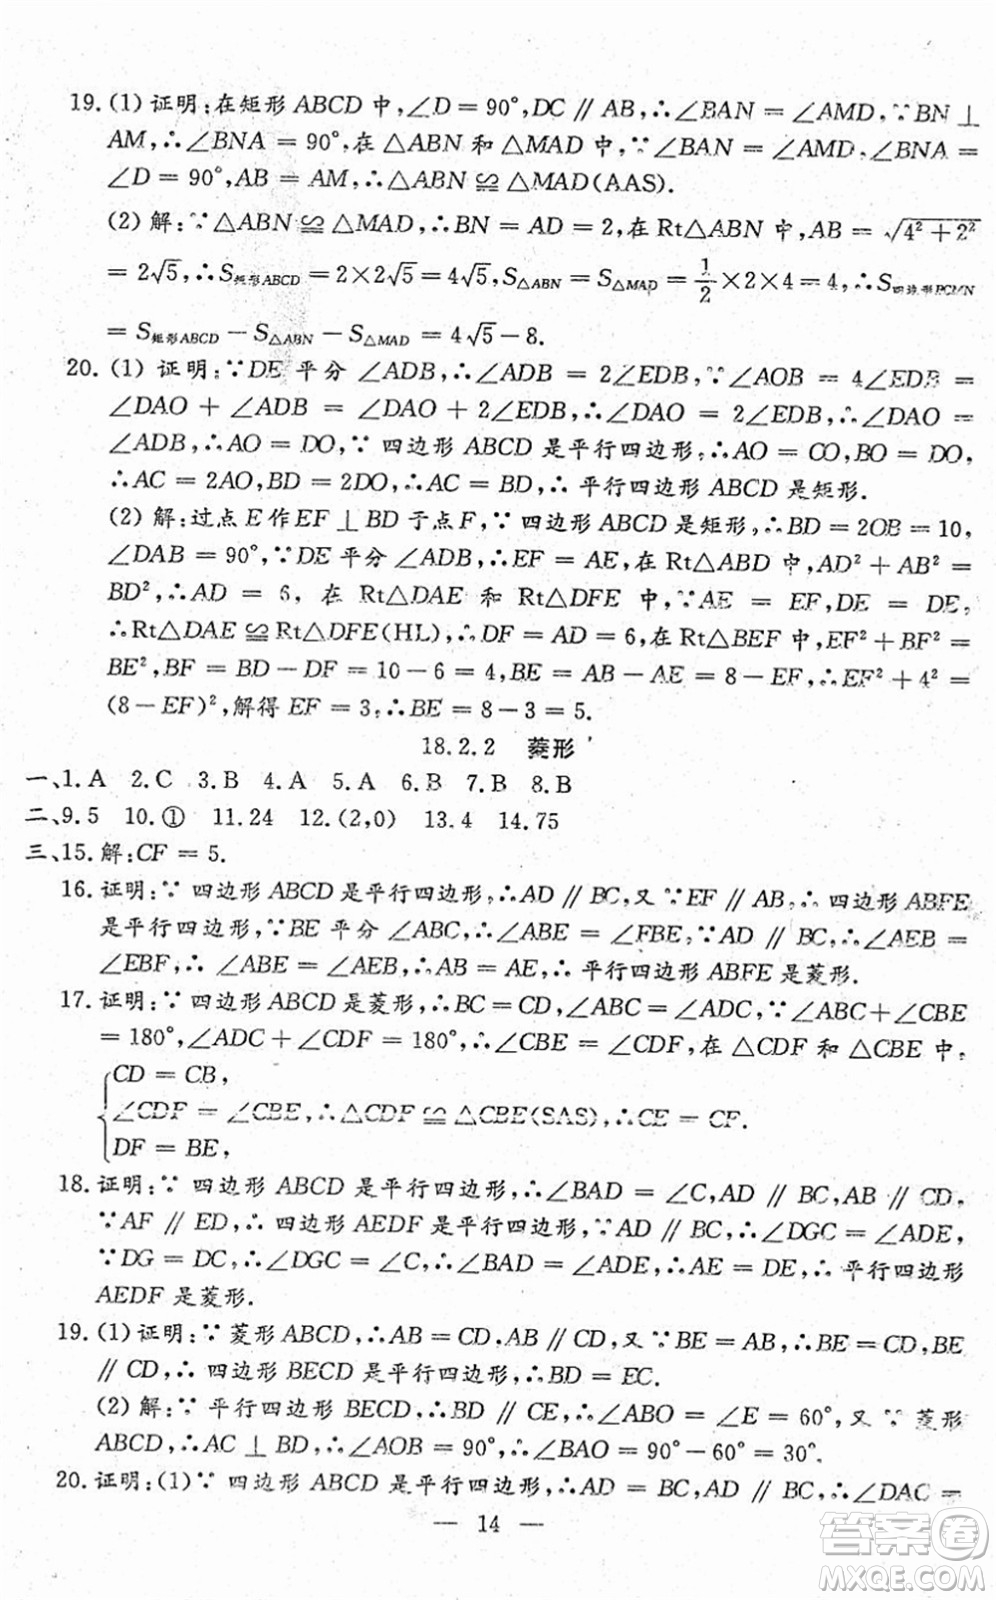 19. (1) 证明:在矩形 ABCD 中,∠D = 90°,DC // AB,∴∠BAN = ∠AMD,∵BN ⊥
AM,∴∠BNA = 90°,在 △ABN 和 △MAD 中,∵∠BAN = ∠AMD,∠BNA =
∠D = 90°,AB = AM,∴△ABN ≌ △MAD(AAS).
(2) 解:∵△ABN ≌ △MAD,∴BN = AD = 2,在 Rt△ABN 中,AB = √(4²+2²)
= 2√5,∴S矩形ABCD = 2×2√5 = 4√5,S△ABN = S△MAD = 1/2×2×4 = 4,∴S四边形BCMN
= S矩形ABCD − S△ABN − S△MAD = 4√5−8.
20. (1) 证明:∵DE 平分 ∠ADB,∴∠ADB = 2∠EDB,∵∠AOB = 4∠EDB =
∠DAO + ∠ADB = ∠DAO + 2∠EDB,∴∠DAO = 2∠EDB,∴∠DAO =
∠ADB,∴AO = DO,∵ 四边形 ABCD 是平行四边形,∴AO = CO,BO = DO,
∴AC = 2AO,BD = 2DO,∴AC = BD,∴ 平行四边形 ABCD 是矩形.
(2) 解:过点 E 作 EF ⊥ BD 于点 F,∵ 四边形 ABCD 是矩形,∴BD = 2OB = 10,
∠DAB = 90°,∵DE 平分 ∠ADB,∴EF = AE,在 Rt△ABD 中,AD² + AB² =
BD²,∴AD = 6, 在 Rt△DAE 和 Rt△DFE 中,∵AE = EF,DE = DE,
∴Rt△DAE ≌ Rt△DFE(HL),∴DF = AD = 6,在 Rt△BEF 中,EF² + BF² =
BE²,BF = BD − DF = 10 − 6 = 4,BE = AB − AE = 8 − EF,∴EF² + 4² =
(8 − EF)²,解得 EF = 3,∴BE = 8 − 3 = 5.
18.2.2 菱形
一、1. A 2. C 3. B 4. A 5. A 6. B 7. B 8. B
二、9. 5 10. ① 11. 24 12. (2,0) 13. 4 14. 75
三、15. 解:CF = 5.
16. 证明:∵ 四边形 ABCD 是平行四边形,∴AD // BC,又 ∵EF // AB,∴ 四边形 ABFE
是平行四边形,∵BE 平分 ∠ABC,∴∠ABE = ∠FBE,∵AD // BC,∴∠AEB =
∠EBF,∴∠ABE = ∠AEB,∴AB = AE,∴ 平行四边形 ABFE 是菱形.
17. 证明:∵ 四边形 ABCD 是菱形,∴BC = CD,∠ABC = ∠ADC,∵∠ABC + ∠CBE
= 180°,∠ADC + ∠CDF = 180°,∴∠CBE = ∠CDF,在 △CDF 和 △CBE 中,
CD = CB,
∠CDF = ∠CBE,∴△CDF ≌ △CBE(SAS),∴CE = CF.
DF = BE,
18. 证明:∵ 四边形 ABCD 是平行四边形,∴∠BAD = ∠C,AD // BC,AB // CD,
∵AF // ED,∴ 四边形 AEDF 是平行四边形,∵AD // BC,∴∠DGC = ∠ADE,
∵DG = DC,∴∠DGC = ∠C,∴∠BAD = ∠ADE,∴AE = DE,∴ 平行四边形
AEDF 是菱形.
19. (1) 证明:∵ 菱形 ABCD,∴AB = CD,AB // CD,又 ∵BE = AB,∴BE = CD,BE
// CD,∴ 四边形 BECD 是平行四边形,∴BD = EC.
(2) 解:∵ 平行四边形 BECD,∴BD // CE,∴∠ABO = ∠E = 60°,又 ∵ 菱形
ABCD,∴AC ⊥ BD,∴∠AOB = 90°,∴∠BAO = 90° − 60° = 30°.
20. 证明:(1)∵ 四边形 ABCD 是平行四边形,∴AD = BC,AD // BC,∴∠DAC =
— 14 —
答案卷
MXQE.COM